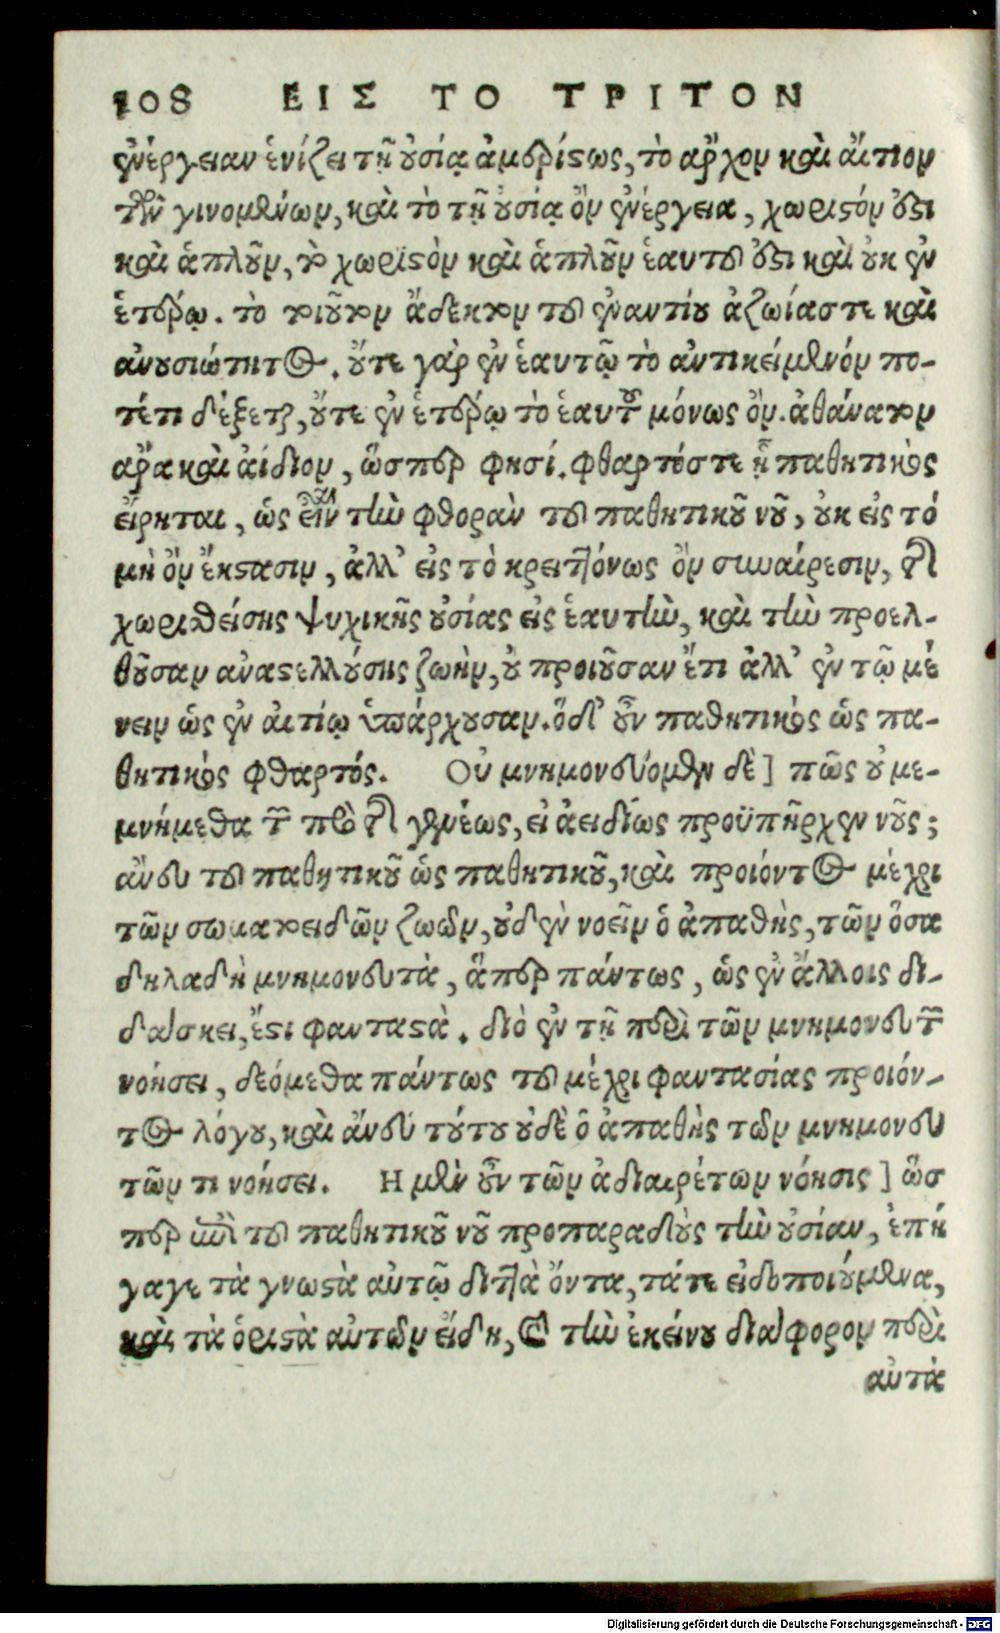 108 ΕΙΣ ΤΟ ΤΡΙΤΟΝ
ἐνέργειαν ἑνίζει τῇ οὐσίᾳ ἀμερίστως, τὸ ἄρχον καὶ αἴτιον
τῶν γινομένων, καὶ τὸ τῇ οὐσίᾳ ὂν ἐνέργεια, χωριστόν ἐστι
καὶ ἁπλοῦν, τὸ χωριστὸν καὶ ἁπλοῦν ἑαυτοῦ ἐστι καὶ οὐκ ἐν
ἑτέρῳ. τὸ τοιοῦτον ἄδεκτον τοῦ ἐναντίου ἀζωίας τε καὶ
ἀνουσιώτητος. οὔτε γὰρ ἐν ἑαυτῷ τὸ ἀντικείμενόν πο-
τέ τι δέξεται, οὔτε ἐν ἑτέρῳ τὸ ἑαυτοῦ μόνως ὄν. ἀθάνατον
ἄρα καὶ ἀίδιον, ὥσπερ φησί. φθαρτός τε ᾗ παθητικὸς
εἴρηται, ὡς εἶναι τὴν φθορὰν τοῦ παθητικοῦ νοῦ, οὐκ εἰς τό
μὴ ὂν ἔκστασιν, ἀλλ’ εἰς τὸ κρειττόνως ὂν συναίρεσιν, τῆς
χωρισθείσης ψυχικῆς οὐσίας εἰς ἑαυτὴν, καὶ τὴν προελ-
θοῦσαν ἀναστελλούσης ζωὴν, οὐ προιοῦσαν ἔτι ἀλλ’ ἐν τῷ μέ
νειν ὡς ἐν αἰτίῳ ὑπάρχουσαν. ὅδ’ οὖν παθητικὸς ὡς πα-
θητικὸς φθαρτός. Οὐ μνημονεύομεν δὲ] πῶς οὐ με-
μνήμεθα τῶν πρὸ τῆς γενέσεως, εἰ ἀειδίως προϋπῆρχεν νοῦς;
ἄνευ τοῦ παθητικοῦ ὡς παθητικοῦ, καὶ προιόντος μέχρι
τῶν σωματοειδῶν ζωῶν, οὐδὲν νοεῖν ὁ ἀπαθὴς, τῶν ὅσα
δηλαδὴ μνημονευτὰ, ἅπερ πάντως, ὡς ἐν ἄλλοις δι-
δάσκει, ἔστι φανταστὰ. διὸ ἐν τῇ περὶ τῶν μνημονευτῶν
νοήσει, δεόμεθα πάντως τοῦ μέχρι φαντασίας προιόν-
τος λόγου, καὶ ἄνευ τούτου οὐδὲ ὁ ἀπαθὴς τῶν μνημονευ
τῶν τι νοήσει. Η μὲν οὖν τῶν ἀδιαιρέτων νόησις] ὥσ
περ ἐπὶ τοῦ παθητικοῦ νοῦ προπαραδοὺς τὴν οὐσίαν, ἐπή
γαγε τὰ γνωστὰ αὐτῷ διττὰ ὄντα, τά τε εἰδοποιούμενα,
καὶ τὰ ὁριστὰ αὐτῶν εἴδη, καὶ τὴν ἐκείνου διάφορον περὶ
αὐτὰ
Digitalisierung gefördert durch die Deutsche Forschungsgemeinschaft - DFG